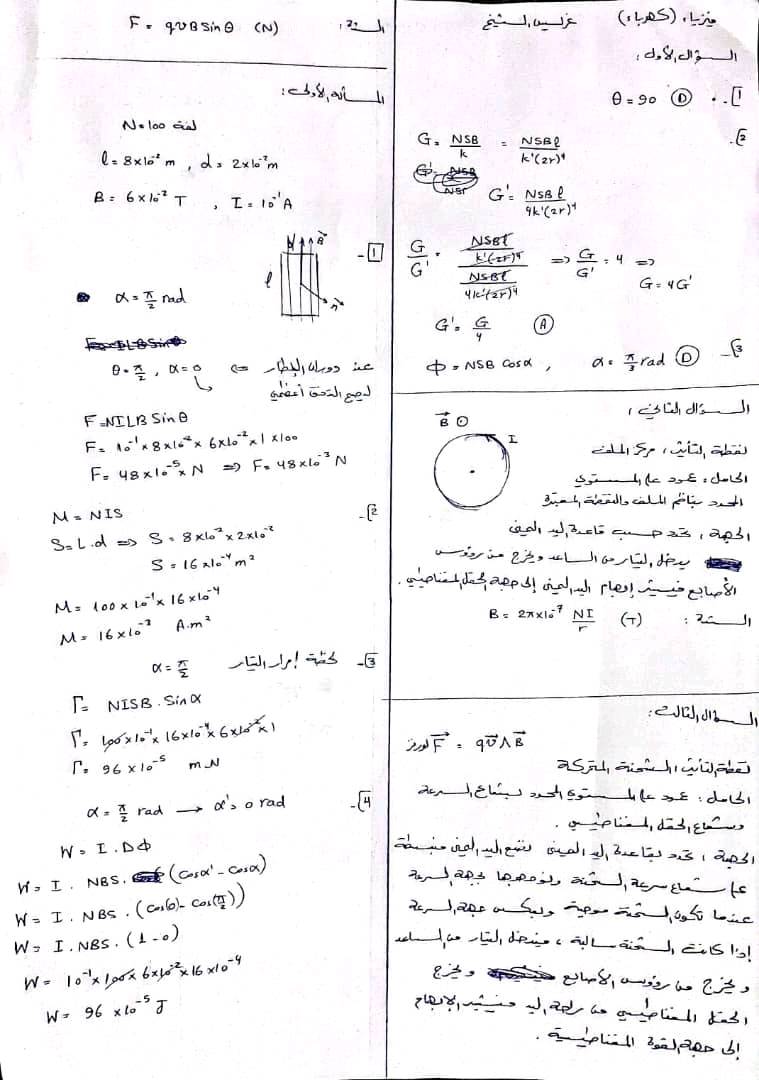 فيزياء (كهرباء) غرليس الشيخ
السؤال الأول:
1- θ = 90 (D)
2- G = NSB/k = NSBl/k'(2r)⁴
G' = NSBl/4k'(2r)⁴
G/G' = (NSBl/k'(2r)⁴)/(NSBl/4k'(2r)⁴) => G/G' = 4 => G = 4G'
G' = G/4 (A)
3- Φ = NSB cosα , α = π/3 rad (D)
السؤال الثاني:
B I
نقطة التأثير: مركز الملف
الحامل: عمود على المستوي
المحدد بناظم الملف والنقطة المعتبرة
الجهة: تحدد حسب قاعدة اليد اليمنى
يدخل التيار من الساعد ويخرج من رؤوس
الأصابع فيشير إبهام اليد اليمنى إلى جهة الحقل المغناطيسي.
الشدة: B = 2π×10⁻⁷ NI/r (T)
السؤال الثالث:
F لورنز = qv Λ B
نقطة التأثير: الشحنة المتحركة
الحامل: عمود على المستوي المحدد بشعاع السرعة
وشعاع الحقل المغناطيسي.
الجهة: تحدد بقاعدة اليد اليمنى نضع اليد اليمنى منبسطة
على شعاع سرعة الشحنة ونوجهها بجهة السرعة
عندما تكون الشحنة موجبة وبعكس جهة السرعة
إذا كانت الشحنة سالبة ، فيدخل التيار من الساعد
ويخرج من رؤوس الأصابع ويخرج
الحقل المغناطيسي من راحة اليد فيشير الإبهام
إلى جهة القوة المغناطيسية.
الشدة: F = qvB sinθ (N)
المسألة الأولى:
N = 100 لفة
l = 8×10⁻² m , d = 2×10⁻² m
B = 6×10⁻² T , I = 10⁻¹ A
1- l B n
α = π/2 rad
θ = π/2 , α = 0 <= عند دوران الإطار
ليصبح التدفق أعظمي
F = NILB Sinθ
F = 10⁻¹ × 8×10⁻² × 6×10⁻² × 1 × 100
F = 48×10⁻⁵ × N => F = 48×10⁻³ N
2- M = NIS
S = L.d => S = 8×10⁻² × 2×10⁻²
S = 16×10⁻⁴ m²
M = 100 × 10⁻¹ × 16×10⁻⁴
M = 16×10⁻³ A.m²
3- لحظة إمرار التيار α = π/2
Γ = NISB . Sinα
Γ = 100×10⁻¹×16×10⁻⁴×6×10⁻²×1
Γ = 96×10⁻⁵ m.N
4- α = π/2 rad → α' = 0 rad
W = I . ΔΦ
W = I . NBS . (cosα' - cosα)
W = I . NBS . (cos(0) - cos(π/2))
W = I . NBS . (1 - 0)
W = 10⁻¹ × 100 × 6×10⁻² × 16×10⁻⁴
W = 96 ×10⁻⁵ J